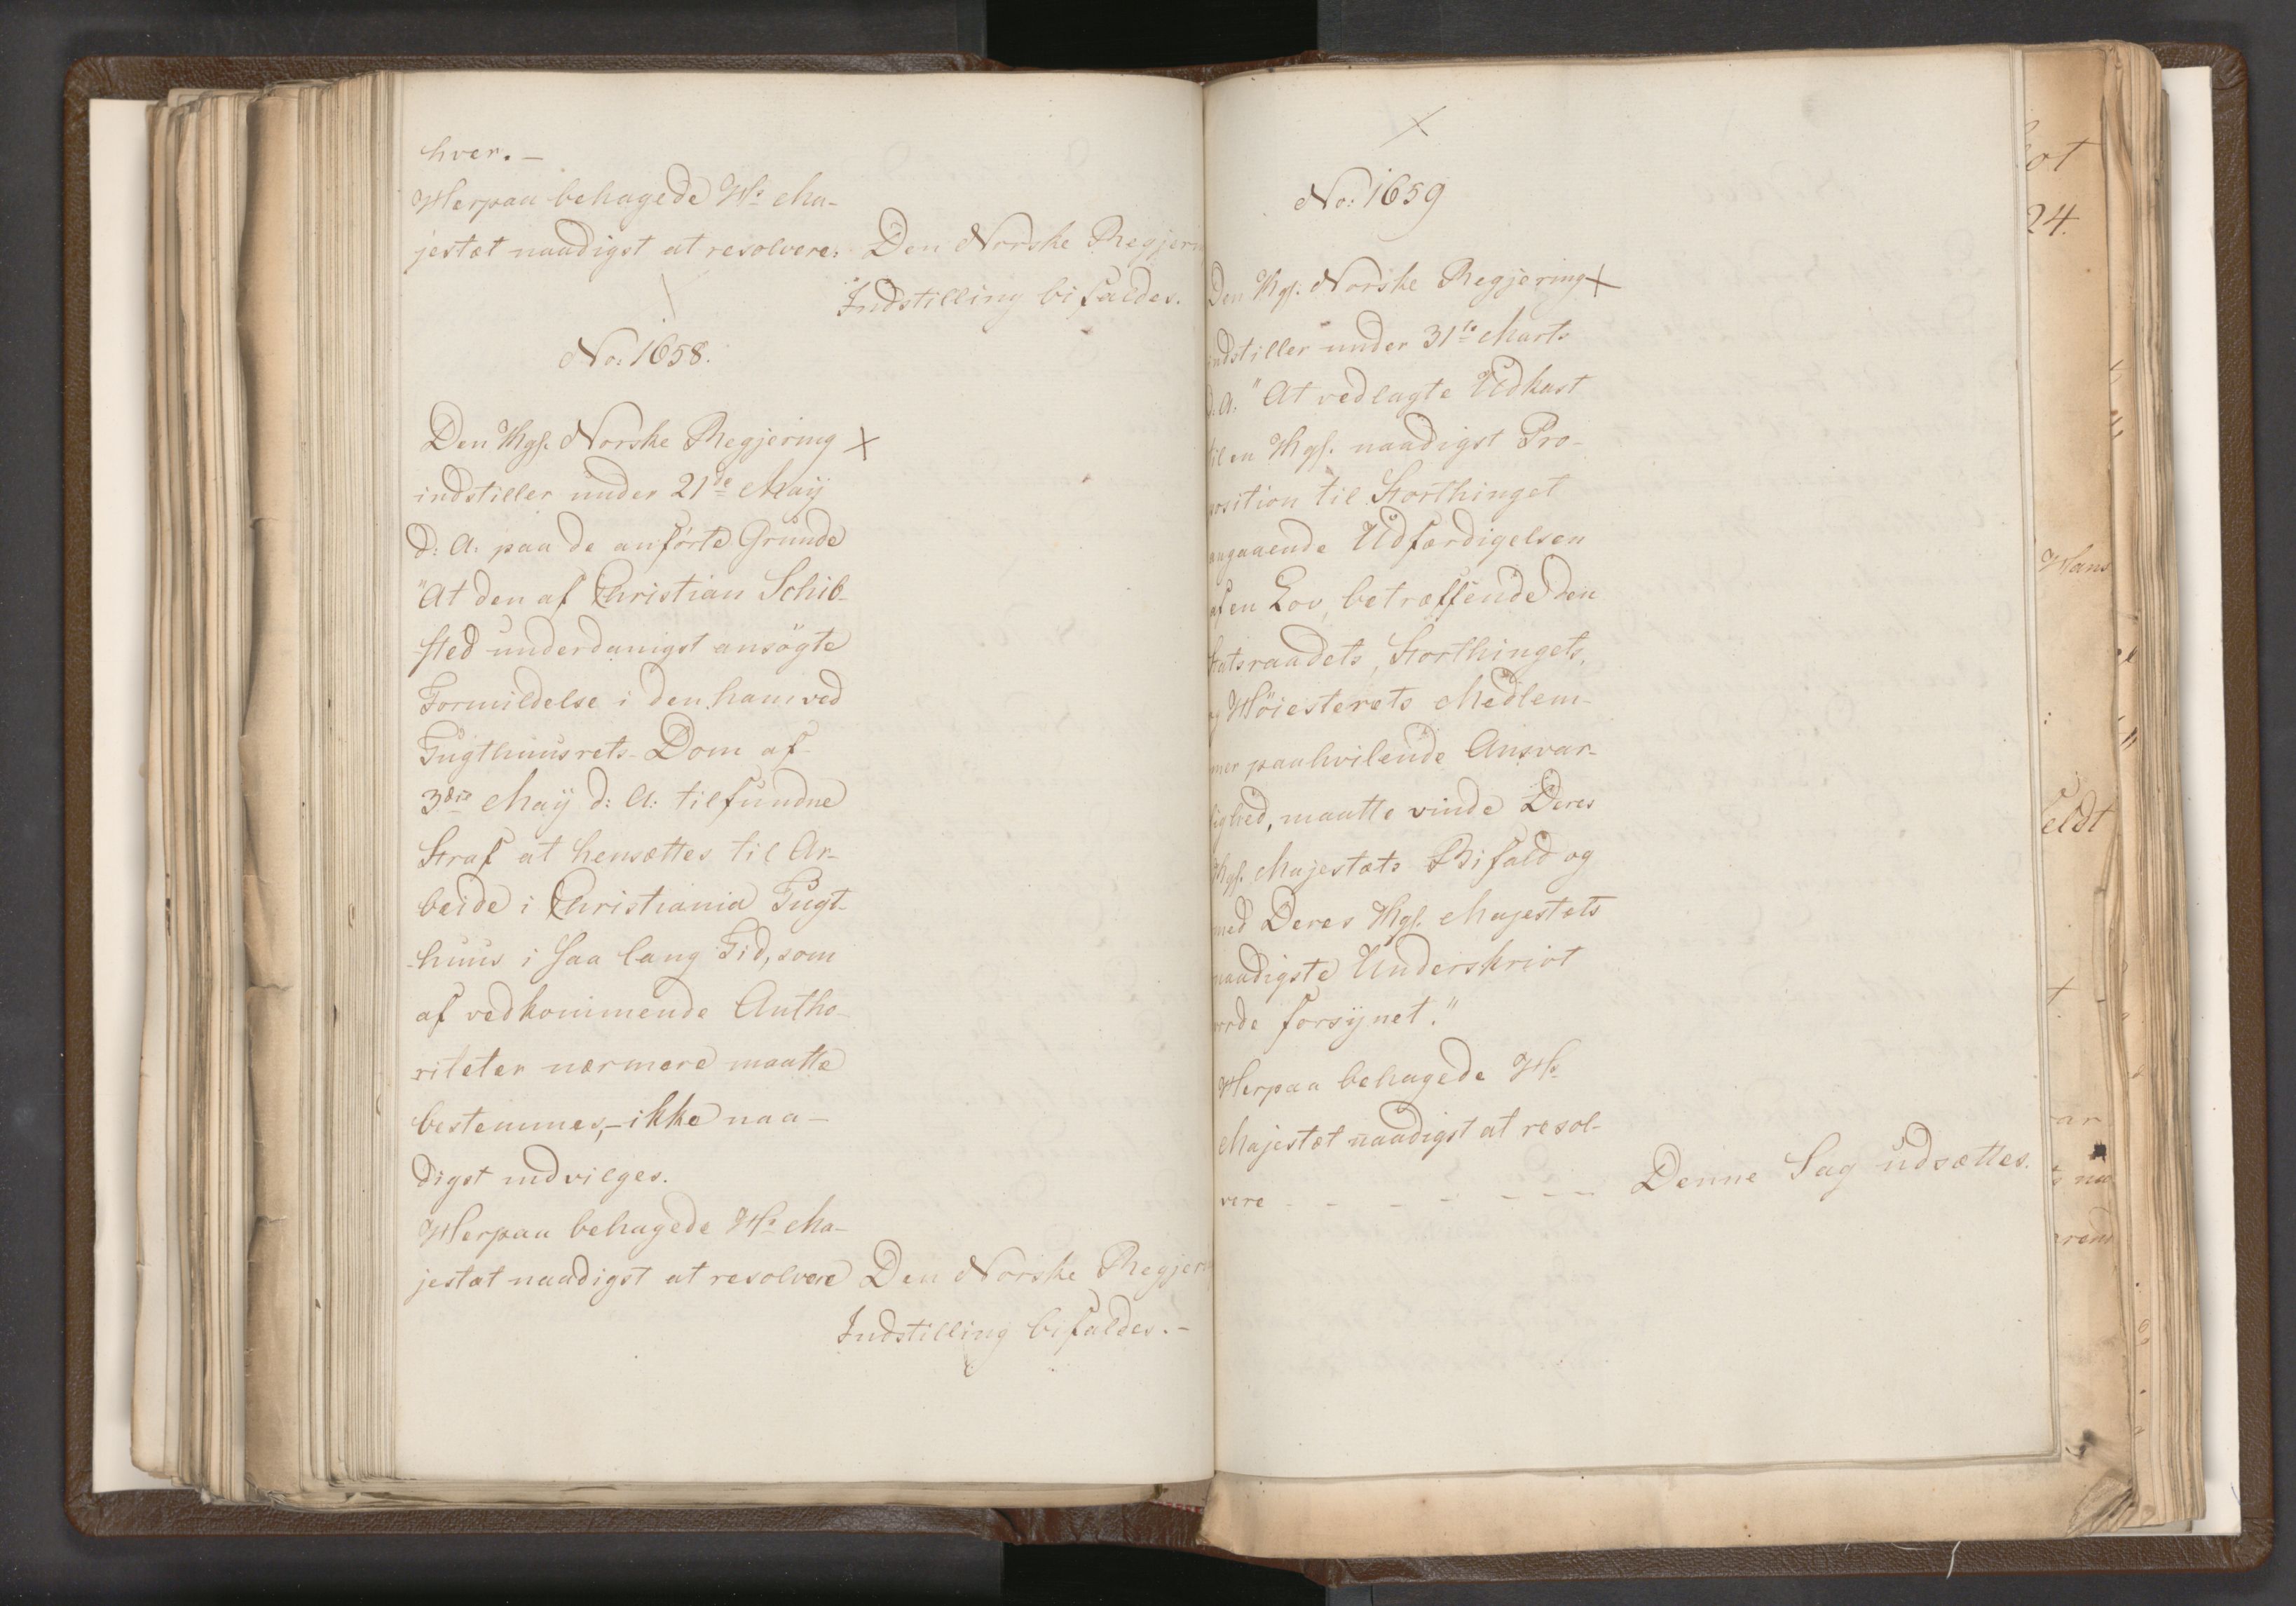 hver. –
Herpaa behagede Hs Ma-
jestæt naadigst at resolvere: Den Norske Regjerin
Indstilling bifaldes.
No: 1658.
Den Kgl. Norske Regjering X
indstiller under 21de May
d: A: paa de anförte Grunde
"At den af Christian Schib-
sted underdanigst ansögte
Formildelse i den ham ved
Tugthuusrets-Dom af
3die May d: A: tilfundne
Straf at hensættes til Ar-
beide i Christiania Tugt-
huus i saa lang Tid, som
af vedkommende Autho-
riteter nærmere maatte
bestemmes, – ikke naa-
digst indvilges.
Herpaa behagede Hs Ma-
jestæt naadigst at resolvere Den Norske Regjeri
Indstilling bifaldes. –
X
No: 1659
Den Kgl: Norske Regjering X
indstiller under 31te Marts
d. A: "At vedlagte Udkast
til en Kgl. naadigst Pro-
position til Storthinget
angaaende Udfærdigelsen
af en Lov, betræffende den
Statsraadets, Storthingets,
og Höiesterets Medlem-
mer paahvilende Ansvar-
lighed, maatte vinde Deres
Kgl. Majestæts Bifald og
med Deres Kgl. Majestæts
naadigste Underskrivt
vorde forsynet."
Herpaa behagede Hs
Majestæt naadigst at resol-
vere - - - - - - - Denne Sag udsættes.
ot
24.
Hans
feldt